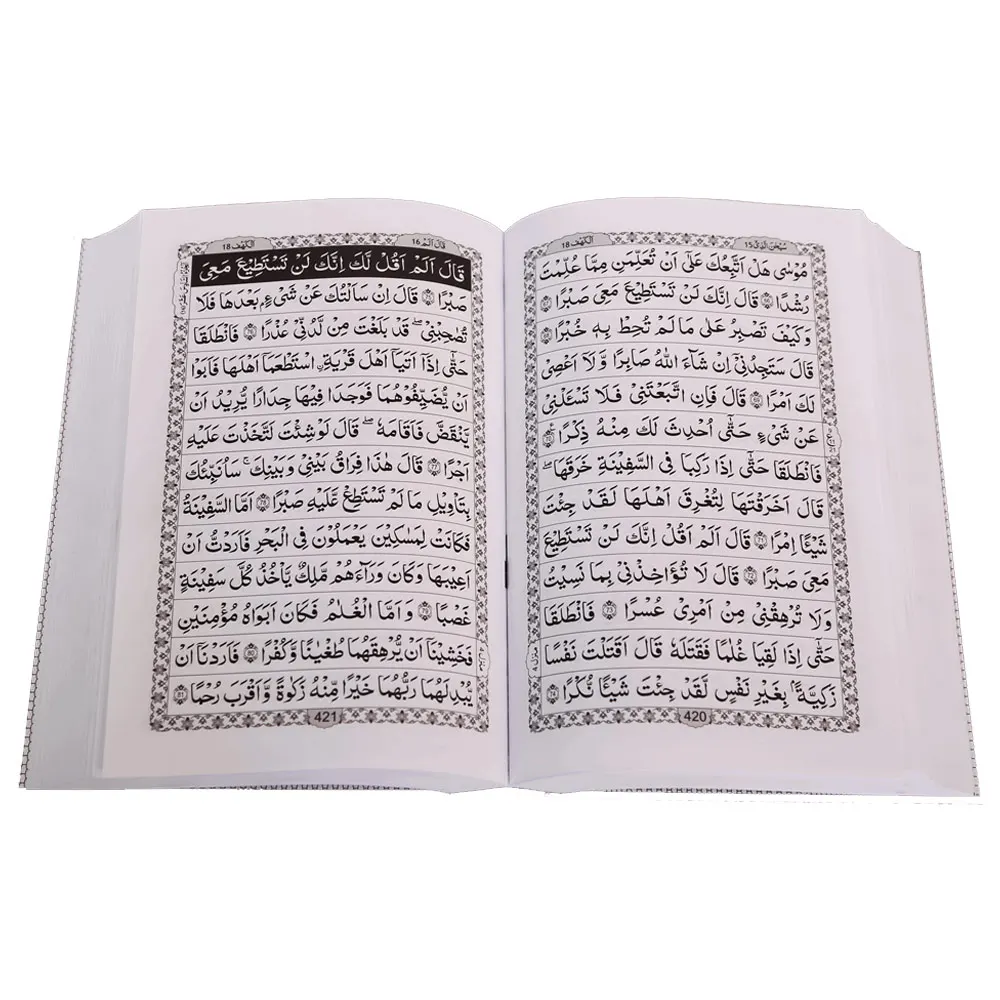 سبحن الذی 15
الکهف 18
مُوْسٰى هَلْ اَتَّبِعُكَ عَلٰٓى اَنْ تُعَلِّمَنِ مِمَّا عُلِّمْتَ
رُشْدًا ۝66 قَالَ اِنَّكَ لَنْ تَسْتَطِيْعَ مَعِىَ صَبْرًا ۝67
وَكَيْفَ تَصْبِرُ عَلٰى مَا لَمْ تُحِطْ بِهٖ خُبْرًا ۝68
قَالَ سَتَجِدُنِىْٓ اِنْ شَآءَ اللّٰهُ صَابِرًا وَّلَاۤ اَعْصِىْ
لَكَ اَمْرًا ۝69 قَالَ فَاِنِ اتَّبَعْتَنِىْ فَلَا تَسْـَٔلْنِىْ
عَنْ شَىْءٍ حَتّٰٓى اُحْدِثَ لَكَ مِنْهُ ذِكْرًا ۝70
فَانْطَلَقَا حَتّٰٓى اِذَا رَكِبَا فِى السَّفِيْنَةِ خَرَقَهَا ؕ
قَالَ اَخَرَقْتَهَا لِتُغْرِقَ اَهْلَهَا لَقَدْ جِئْتَ
شَيْـًٔا اِمْرًا ۝71 قَالَ اَلَمْ اَقُلْ اِنَّكَ لَنْ تَسْتَطِيْعَ
مَعِىَ صَبْرًا ۝72 قَالَ لَا تُؤَاخِذْنِىْ بِمَا نَسِيْتُ
وَلَا تُرْهِقْنِىْ مِنْ اَمْرِىْ عُسْرًا ۝73 فَانْطَلَقَا
حَتّٰٓى اِذَا لَقِيَا غُلٰمًا فَقَتَلَهٗ قَالَ اَقَتَلْتَ نَفْسًا
زَكِيَّةًۢ بِغَيْرِ نَفْسٍ لَقَدْ جِئْتَ شَيْـًٔا نُّكْرًا ۝74
منزل ٤
420
قال الم 16
الکهف 18
قَالَ اَلَمْ اَقُلْ لَّكَ اِنَّكَ لَنْ تَسْتَطِيْعَ مَعِىَ
صَبْرًا ۝75 قَالَ اِنْ سَاَلْتُكَ عَنْ شَىْءٍۭ بَعْدَهَا فَلَا
تُصٰحِبْنِىْ ۚ قَدْ بَلَغْتَ مِنْ لَّدُنِّىْ عُذْرًا ۝76 فَانْطَلَقَا
حَتّٰٓى اِذَآ اَتَيَآ اَهْلَ قَرْيَةِ ۨاسْتَطْعَمَآ اَهْلَهَا فَاَبَوْا
اَنْ يُّضَيِّفُوْهُمَا فَوَجَدَا فِيْهَا جِدَارًا يُّرِيْدُ اَنْ
يَّنْقَضَّ فَاَقَامَهٗ ؕ قَالَ لَوْ شِئْتَ لَتَّخَذْتَ عَلَيْهِ
اَجْرًا ۝77 قَالَ هٰذَا فِرَاقُ بَيْنِىْ وَبَيْنِكَ ۚ سَاُنَبِّئُكَ
بِتَاْوِيْلِ مَا لَمْ تَسْتَطِعْ عَّلَيْهِ صَبْرًا ۝78 اَمَّا السَّفِيْنَةُ
فَكَانَتْ لِمَسٰكِيْنَ يَعْمَلُوْنَ فِى الْبَحْرِ فَاَرَدْتُّ اَنْ
اَعِيْبَهَا وَكَانَ وَرَآءَهُمْ مَّلِكٌ يَّاْخُذُ كُلَّ سَفِيْنَةٍ
غَصْبًا ۝79 وَاَمَّا الْغُلٰمُ فَكَانَ اَبَوٰهُ مُؤْمِنَيْنِ
فَخَشِيْنَآ اَنْ يُّرْهِقَهُمَا طُغْيٰنًا وَّكُفْرًا ۝80 فَاَرَدْنَآ اَنْ
يُّبْدِلَهُمَا رَبُّهُمَا خَيْرًا مِّنْهُ زَكٰوةً وَّاَقْرَبَ رُحْمًا ۝81
منزل ٤
421